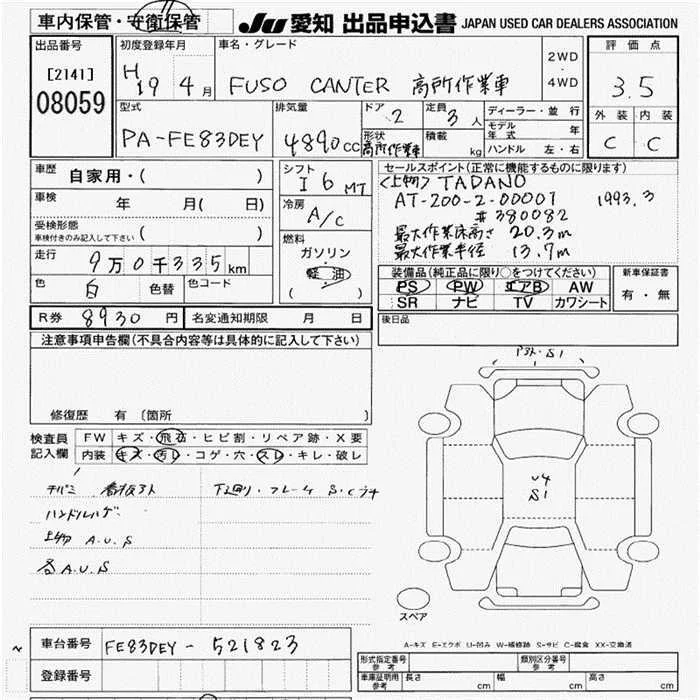 車内保管・安衛保管
JU 愛知 出品申込書 JAPAN USED CAR DEALERS ASSOCIATION
出品番号
[2141]
08059
初度登録年月
H19 4月
車名・グレード
FUSO CANTER 高所作業車
2WD
・
4WD
評価点
3.5
外装 内装
C C
型式
PA-FE83DEY
排気量
4890cc
ドア
2
定員
3人
形状
高所作業車
積載
kg
ディーラー・並行
モデル年式 年
ハンドル 左・右
車歴
自家用・( )
車検
年 月( 日)
受検形態
車検付きのみ記入して下さい ( )
走行
9万0千335km
色
白
色替
色コード
シフト
I6MT
冷房
A/C
燃料
ガソリン
・
軽油
( )
セールスポイント(正常に機能するものに限ります)
<上物> TADANO
AT-200-2-00001 1993.3
#380082
最大作業床高さ 20.3m
最大作業半径 13.7m
装備品(純正品に限り○をつけてください)
PS PW エアB AW
SR ナビ TV カワシート
新車保証書
有・無
R券 8930円
名変通知期限 月 日
後日品
注意事項申告欄(不具合内容等は具体的に記入して下さい)
修復歴 有 〔箇所 〕
検査員
記入欄
FW キズ・飛石・ヒビ割・リペア跡・X要
内装 キズ・汚レ・コゲ・穴・スレ・キレ・破レ
下廻り・フレーム S・Cラチ
ハンドルハゲ
上物 A.U.S
各A.U.S
S1
U4
S1
スペア
A-キズ E-エクボ U-凹み W-補修跡 S-サビ C-腐食 XX-交換済
車台番号 FE83DEY-521823
登録番号
形式指定番号
参考
類別区分番号
参考
車庫証明用
参考
長さ cm
幅 cm
高さ cm